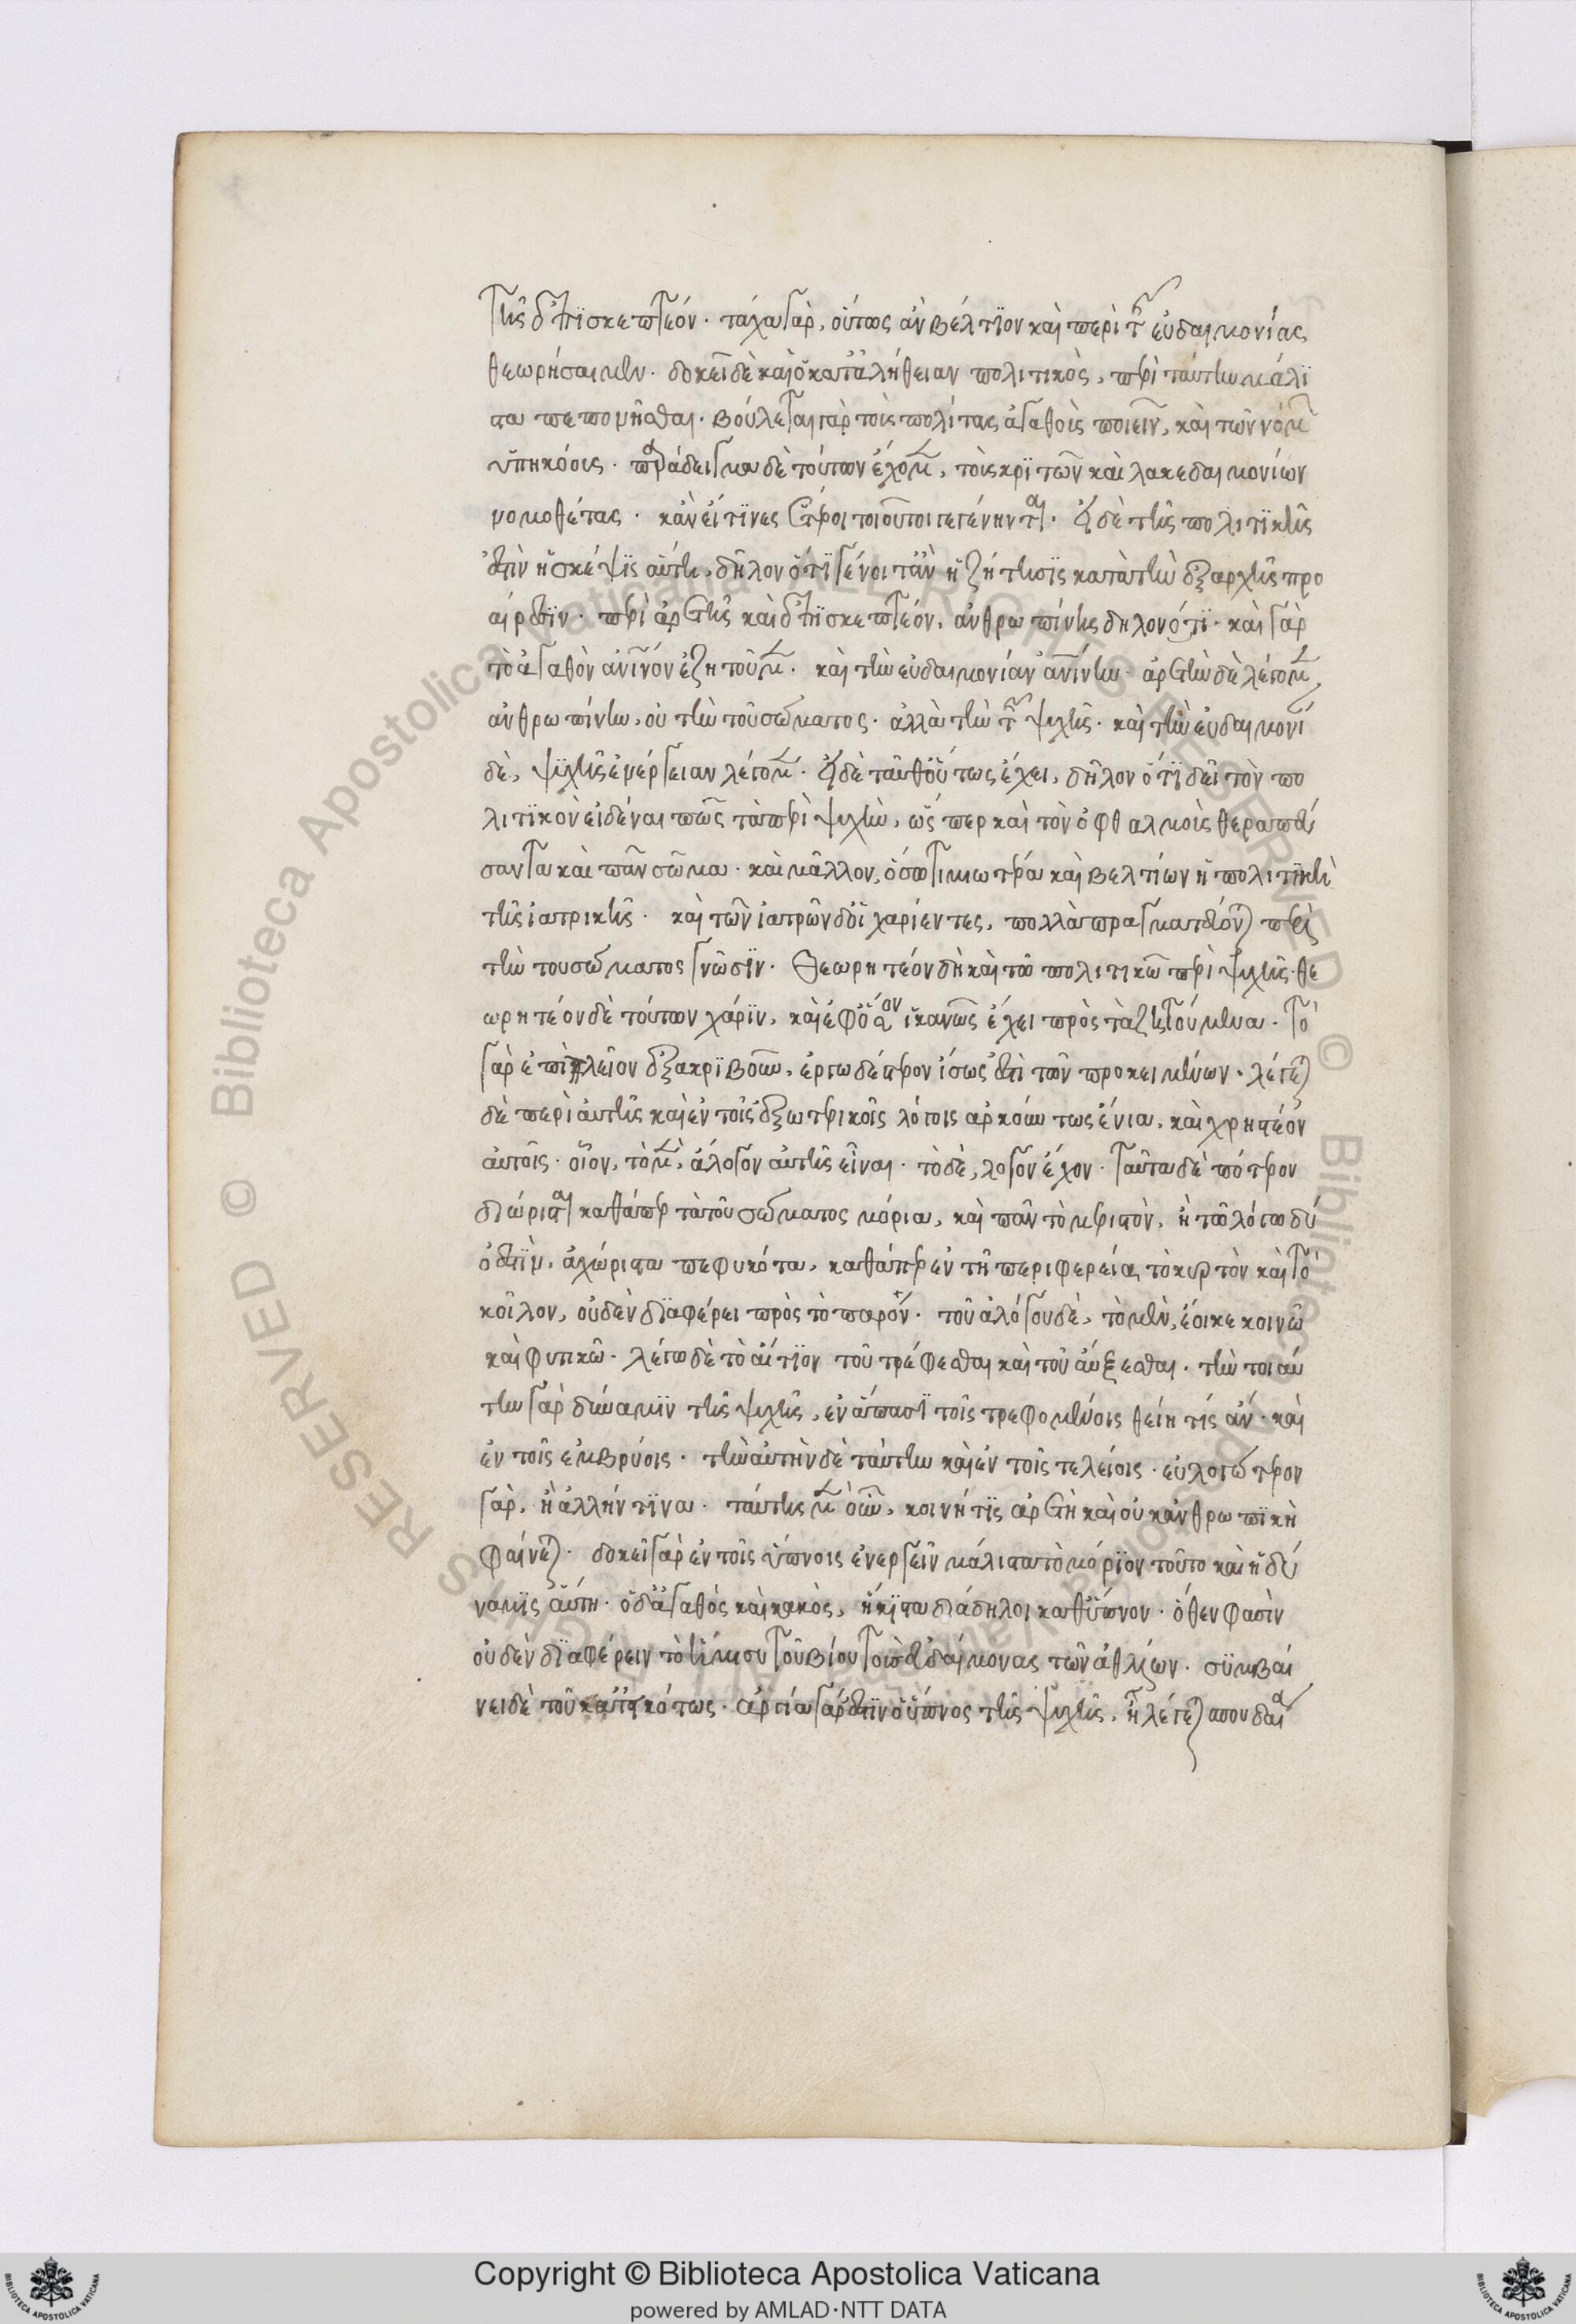 τῆς ἐπισκεπτέον· τάχα γὰρ, οὕτως ἂν βέλτιον καὶ περὶ τῆς εὐδαιμονίας
θεωρήσαιμεν· δοκεῖ δὲ καὶ ὁ κατ' ἀλήθειαν πολιτικὸς, περὶ ταύτην μάλι
στα πεπονῆσθαι· βούλεται γὰρ τοὺς πολίτας ἀγαθοὺς ποιεῖν, καὶ τῶν νόμων
ὑπηκόους· παράδειγμα δὲ τούτων ἔχομεν, τοὺς κριτῶν καὶ λακεδαιμονίων
νομοθέτας· κἂν εἴ τινες ἕτεροι τοιοῦτοι γεγένηνται· εἰ δὲ τῆς πολιτικῆς
ἐστὶν ἡ σκέψις αὕτη, δῆλον ὅτι γένοιτ' ἂν ἡ ζήτησις κατὰ τὴν ἐξαρχῆς προ
αίρεσιν· περὶ ἀρετῆς καὶ ἐπισκεπτέον, ἀνθρωπίνης δηλονότι· καὶ γὰρ
τὸ ἀγαθὸν ἀνινον ἐζητοῦμεν· καὶ τὴν εὐδαιμονίαν ἀνίνην· ἀρετὴν δὲ λέγομεν
ἀνθρωπίνην, οὐ τὴν τοῦ σώματος· ἀλλὰ τὴν τῆς ψυχῆς· καὶ τὴν εὐδαιμονί
δὲ, ψυχῆς ἐνέργειαν λέγομεν· εἰ δὲ ταῦθ' οὕτως ἔχει, δῆλον ὅτι δεῖ τὸν πο
λιτικὸν εἰδέναι πῶς τὰ περὶ ψυχὴν, ὥσπερ καὶ τὸν ὀφθαλμοὺς θεραπεύ
σαντα καὶ πᾶν σῶμα· καὶ μᾶλλον, ὅσω τιμιωτέρα καὶ βελτίων ἡ πολιτικὴ
τῆς ἰατρικῆς· καὶ τῶν ἰατρῶν δ' οἱ χαρίεντες, πολλὰ πραγματεύονται περὶ
τὴν τοῦ σώματος γνῶσιν· θεωρητέον δὴ καὶ τῶ πολιτικῶ περὶ ψυχῆς· θε
ωρητέον δὲ τούτων χάριν, καὶ ἐφ' ὅσον ἱκανῶς ἔχει πρὸς τὰ ζητούμενα· τὸ
γὰρ ἐπὶ πλεῖον ἐξακριβοῦν, ἐργωδέστερον ἴσως ἐστὶ τῶν προκειμένων· λέγεται
δὲ περὶ αὐτῆς καὶ ἐν τοῖς ἐξωτερικοῖς λόγοις ἀρκούντως ἔνια, καὶ χρηστέον
αὐτοῖς· οἷον, τὸ μὲν, ἄλογον αὐτῆς εἶναι· τὸ δὲ, λόγον ἔχον· ταῦτα δὲ πότερον
διώρισται καθάπερ τὰ τοῦ σώματος μόρια, καὶ πᾶν τὸ μεριστὸν, ἢ τῶ λόγω δύ
ὁ ἐστὶν, ἀχώριστα πεφυκότα, καθάπερ ἐν τῆ περιφερεία τὸ κυρτὸν καὶ τὸ
κοῖλον, οὐδὲν διαφέρει πρὸς τὸ παρόν· τοῦ ἀλόγου δὲ, τὸ μὲν, ἔοικε κοινῶ
καὶ φυτικῶ· λέγω δὲ τὸ αἴτιον τοῦ τρέφεσθαι καὶ τοῦ αὔξεσθαι· τὴν τοιαύ
την γὰρ δύναμιν τῆς ψυχῆς, ἐν ἅπασι τοῖς τρεφομένοις θείη τίς ἄν· καὶ
ἐν τοῖς ἐμβρύοις· τὴν αὐτὴν δὲ ταύτην καὶ ἐν τοῖς τελείοις· εὐλογώτερον
γὰρ, ἢ ἄλλην τινα· ταύτης μὲν οὖν, κοινή τις ἀρετὴ καὶ οὐκ ἀνθρωπικὴ
φαίνεται· δοκεῖ γὰρ ἐν τοῖς ὕπνοις ἐνεργεῖν μάλιστα τὸ μόριον τοῦτο καὶ ἡ δύ
ναμις αὕτη· ὁ δ' ἀγαθὸς καὶ κακὸς, ἥκιστα διάδηλοι καθ' ὕπνον· ὅθεν φασὶν
οὐδὲν διαφέρειν τὸ ἥμισυ τοῦ βίου τοὺς εὐδαίμονας τῶν ἀθλίων· συμβαί
νει δὲ τοῦτο εἰκότως· ἀργία γάρ ἐστιν ὁ ὕπνος τῆς ψυχῆς, ἣ λέγεται σπουδαία
Copyright © Biblioteca Apostolica Vaticana
powered by AMLAD·NTT DATA